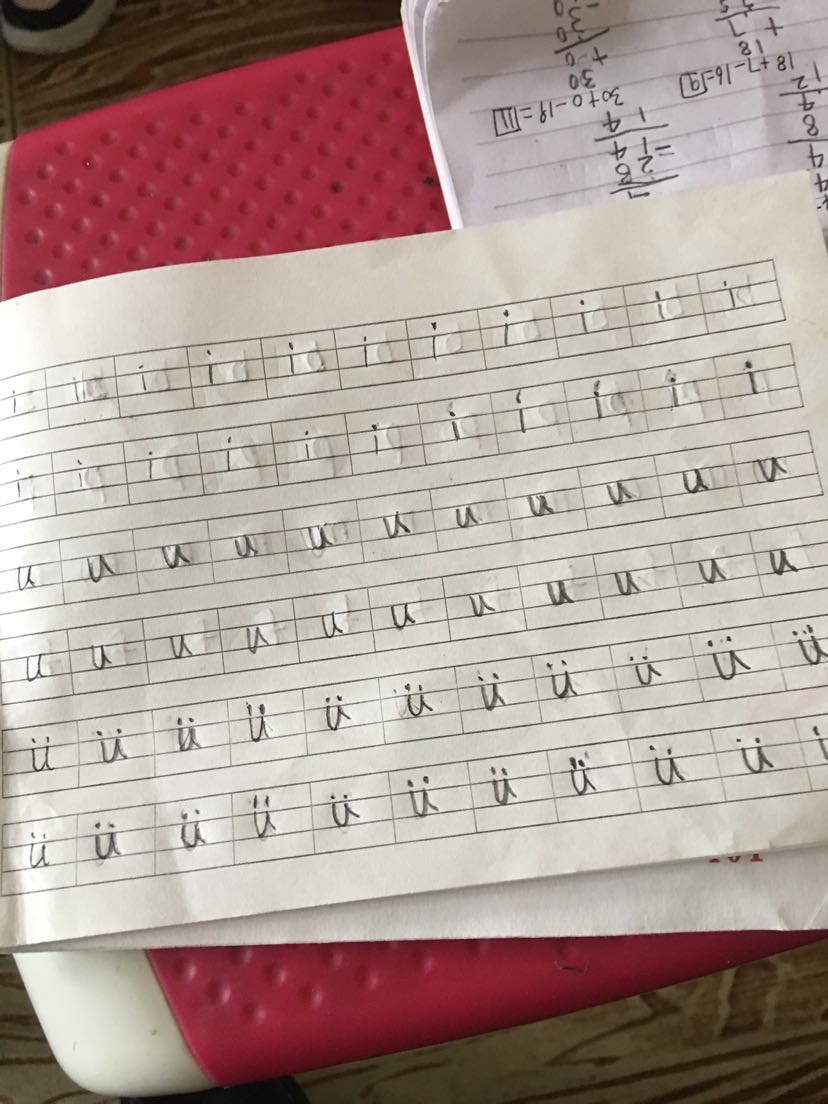 i i i i i i i i i i i
i i i i i i i i i i i
u u u u u u u u u u u
u u u u u u u u u u u
ü ü ü ü ü ü ü ü ü ü ü
ü ü ü ü ü ü ü ü ü ü
18+7-16=9
30+0-19=11